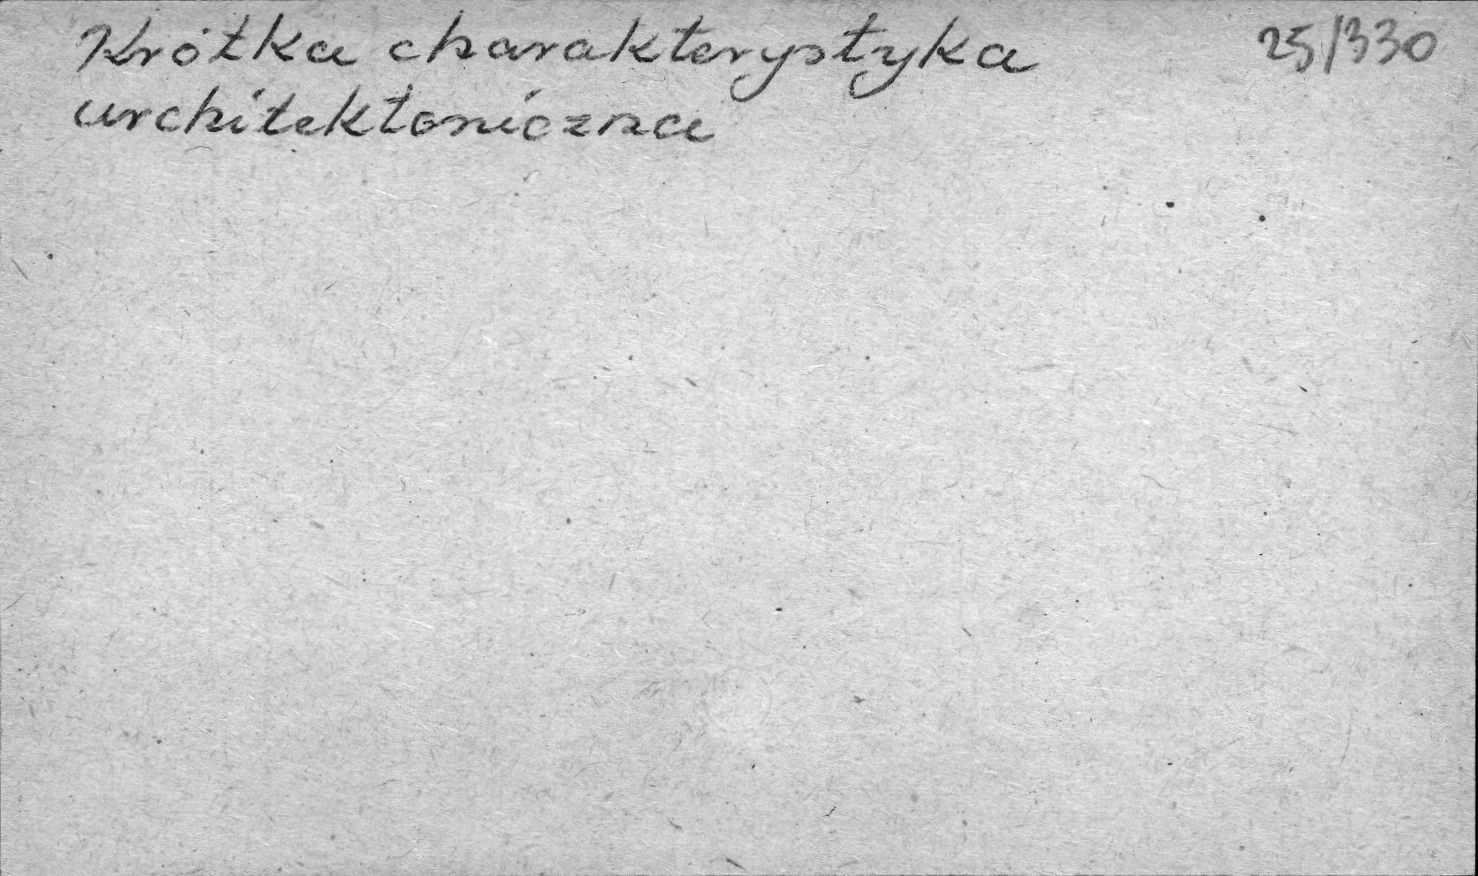 Krótka charakterystyka 25/330
architektoniczna